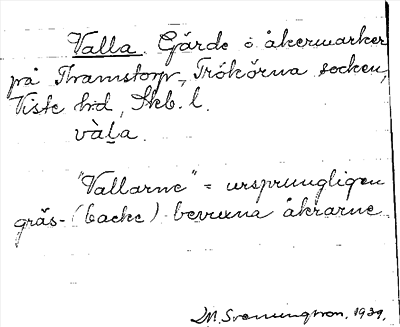 Valla. Gärde o åkermarker
på Thamstorp, Trökörna socken,
Viste hd, Skb. l.
vàḻa.
"Vallarne" = ursprungligen
gräs-(backe) bevuxna åkrarne
D.M. Svenungsson. 1931.